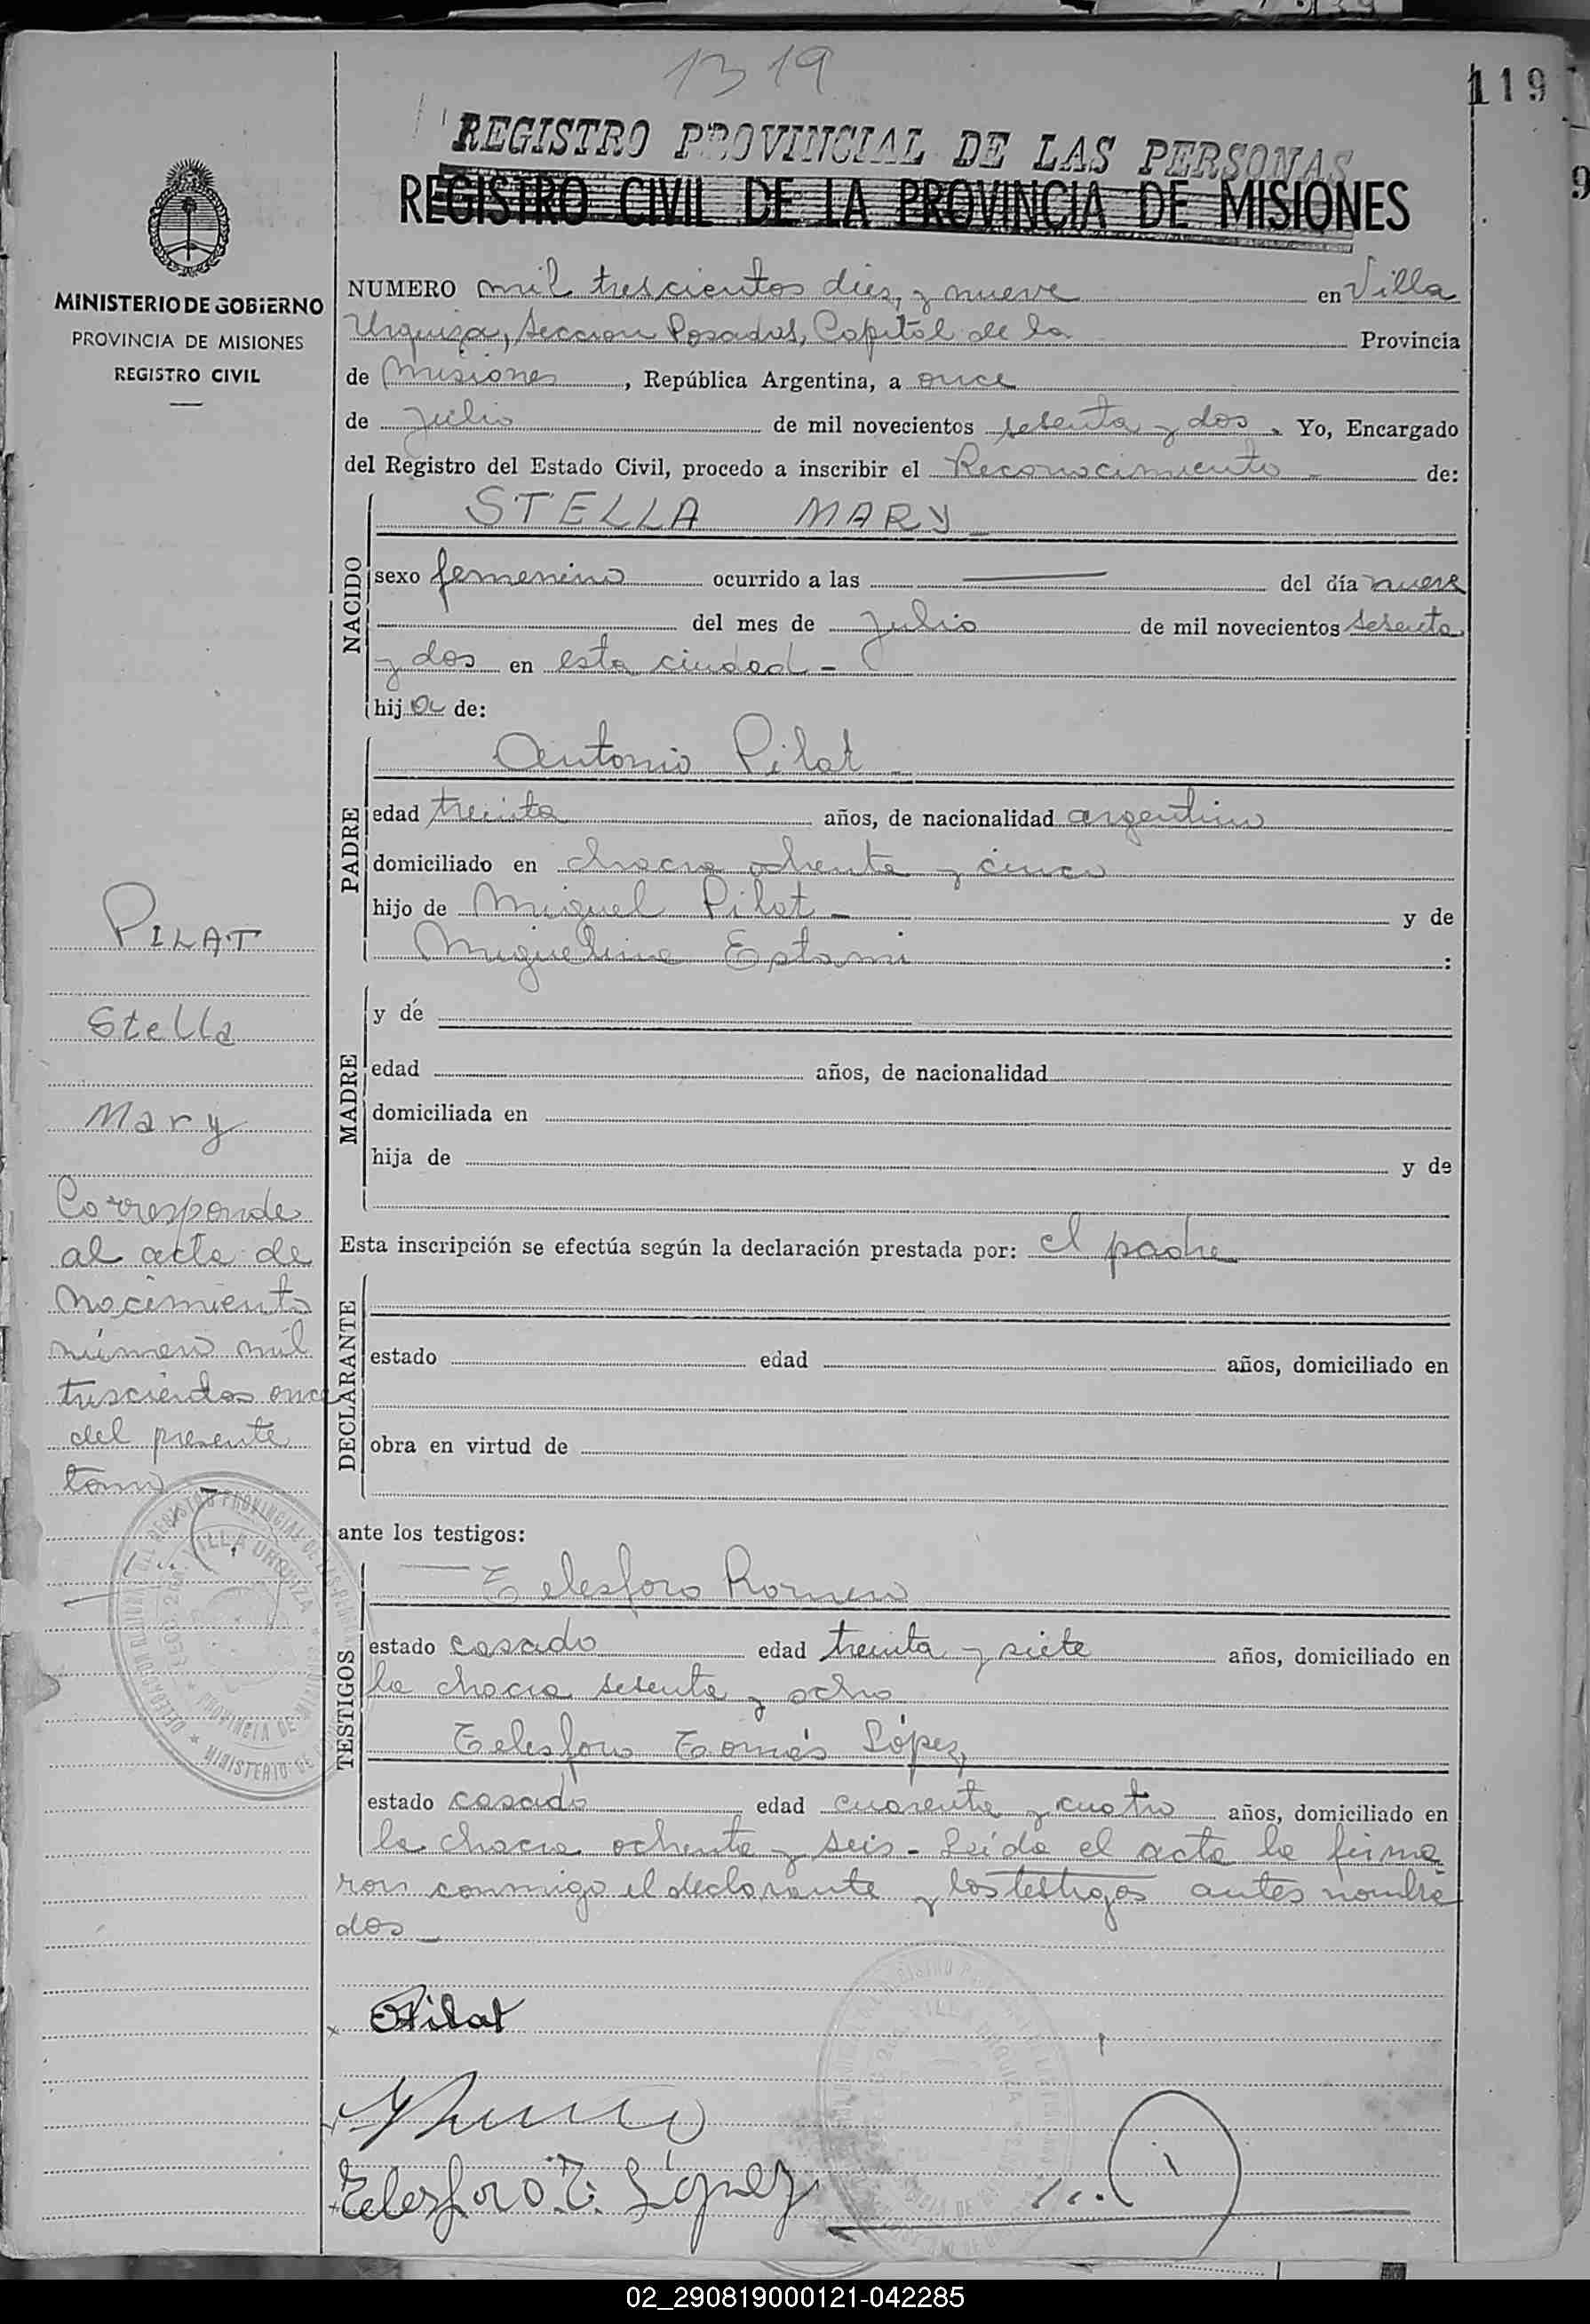 1319
119
9
REGISTRO PROVINCIAL DE LAS PERSONAS
REGISTRO CIVIL DE LA PROVINCIA DE MISIONES
MINISTERIO DE GOBIERNO
PROVINCIA DE MISIONES
REGISTRO CIVIL
NUMERO mil trescientos diez y nueve en Villa
Urquiza, Seccion Posadas, Capital de la Provincia
de Misiones, República Argentina, a once
de Julio de mil novecientos setenta y dos. Yo, Encargado
del Registro del Estado Civil, procedo a inscribir el Reconocimiento - de:
NACIDO
STELLA MARY
sexo femenino ocurrido a las — del día nueve
del mes de Julio de mil novecientos setenta
y dos en esta ciudad -
hija de:
PADRE
Antonio Pilat
edad treinta años, de nacionalidad argentino
domiciliado en chacra ochenta y cinco
hijo de Miguel Pilat - y de
Miguelina Estami :
MADRE
y de
edad años, de nacionalidad
domiciliada en
hija de y de
Esta inscripción se efectúa según la declaración prestada por: el padre
DECLARANTE
estado edad años, domiciliado en
obra en virtud de
ante los testigos:
TESTIGOS
Telesforo Romero
estado casado edad treinta y siete años, domiciliado en
la chacra setenta y ocho
Telesforo Tomás López
estado casado edad cuarenta y cuatro años, domiciliado en
la chacra ochenta y seis - Leída el acta la firma
ron conmigo el declarante y los testigos antes nombra
dos -
PILAT
Stella
Mary
Corresponde
al acta de
Nacimiento
número mil
trescientos once
del presente
tomo -
VILLA URQUIZA
PROVINCIA DE
MINISTERIO DE
Pilat
Telesforo T. López
02_290819000121-042285